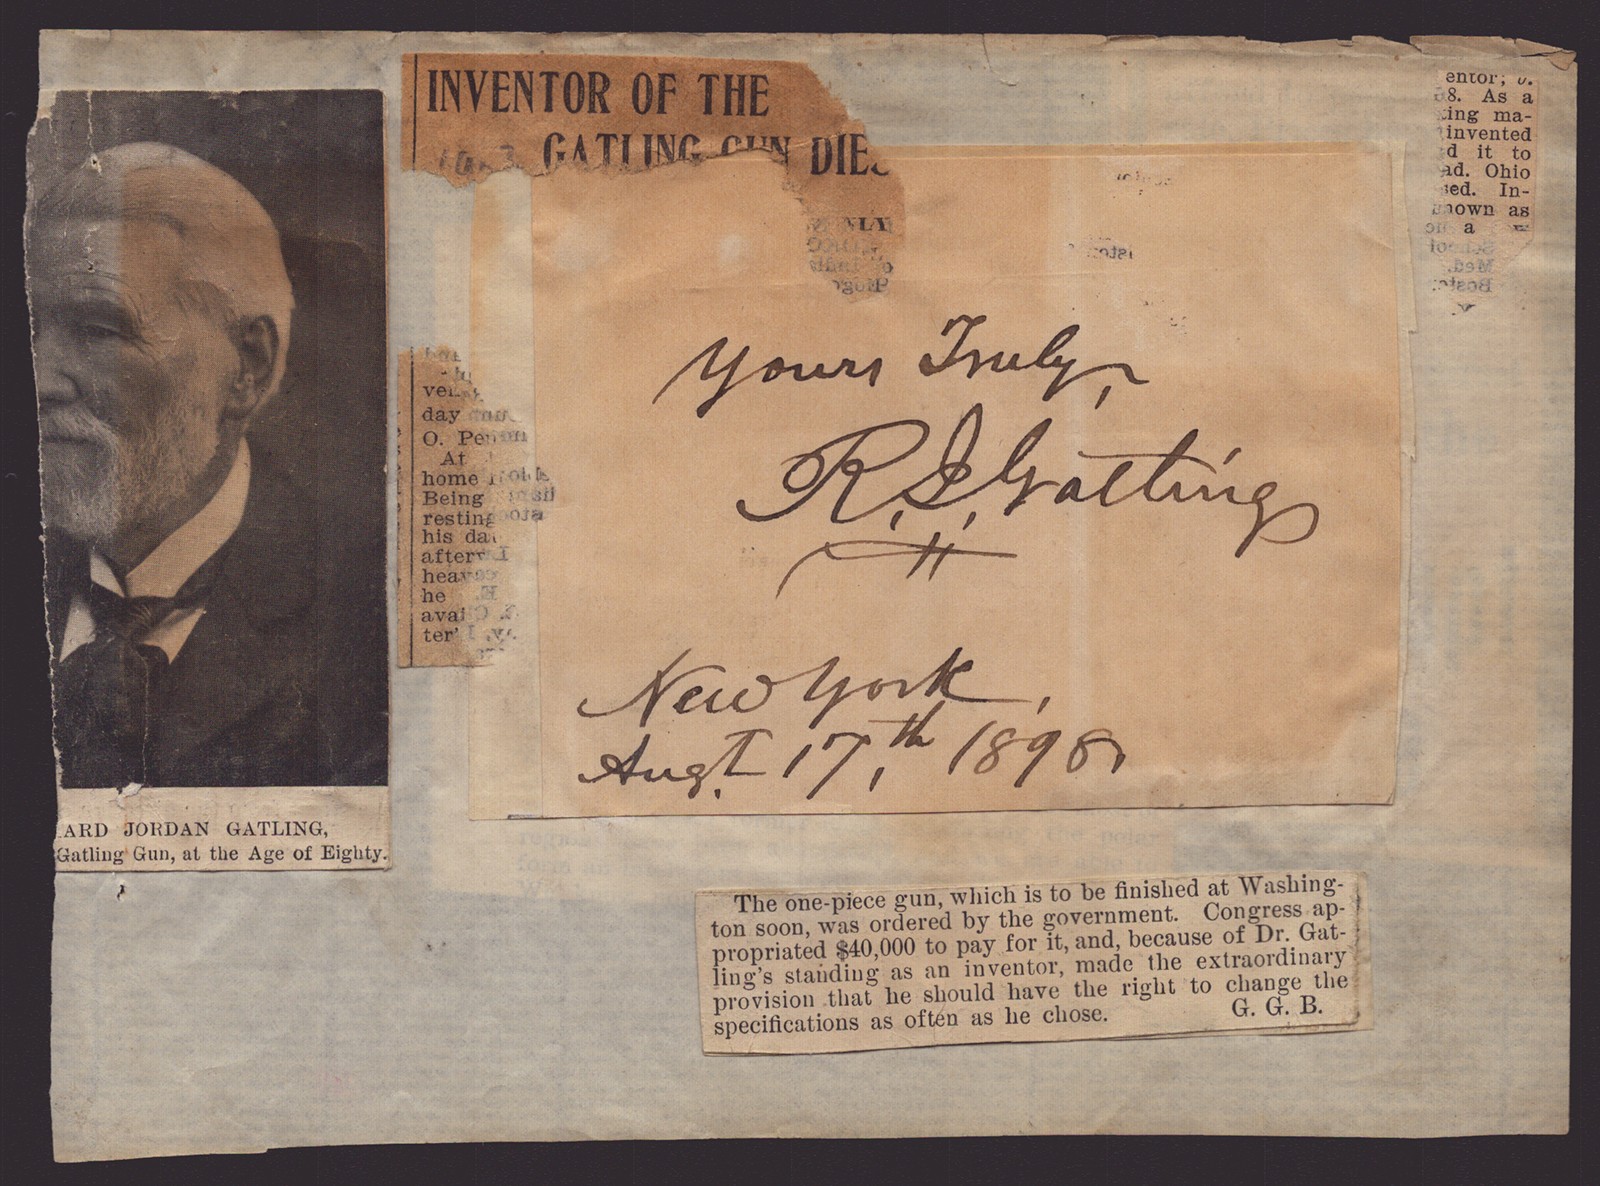 INVENTOR OF THE
GATLING GUN DIES
ARD JORDAN GATLING,
Gatling Gun, at the Age of Eighty.
day
O. Pen
At
home
Being
resting
his da
afterw
heav
he
avai
ter'
Yours Truly,
R. J. Gatling
New York,
Augt. 17th, 1898,
The one-piece gun, which is to be finished at Washing-
ton soon, was ordered by the government. Congress ap-
propriated $40,000 to pay for it, and, because of Dr. Gat-
ling's standing as an inventor, made the extraordinary
provision that he should have the right to change the
specifications as often as he chose. G. G. B.
entor; b.
8. As a
ting ma-
invented
d it to
ad. Ohio
sed. In-
nown as
a